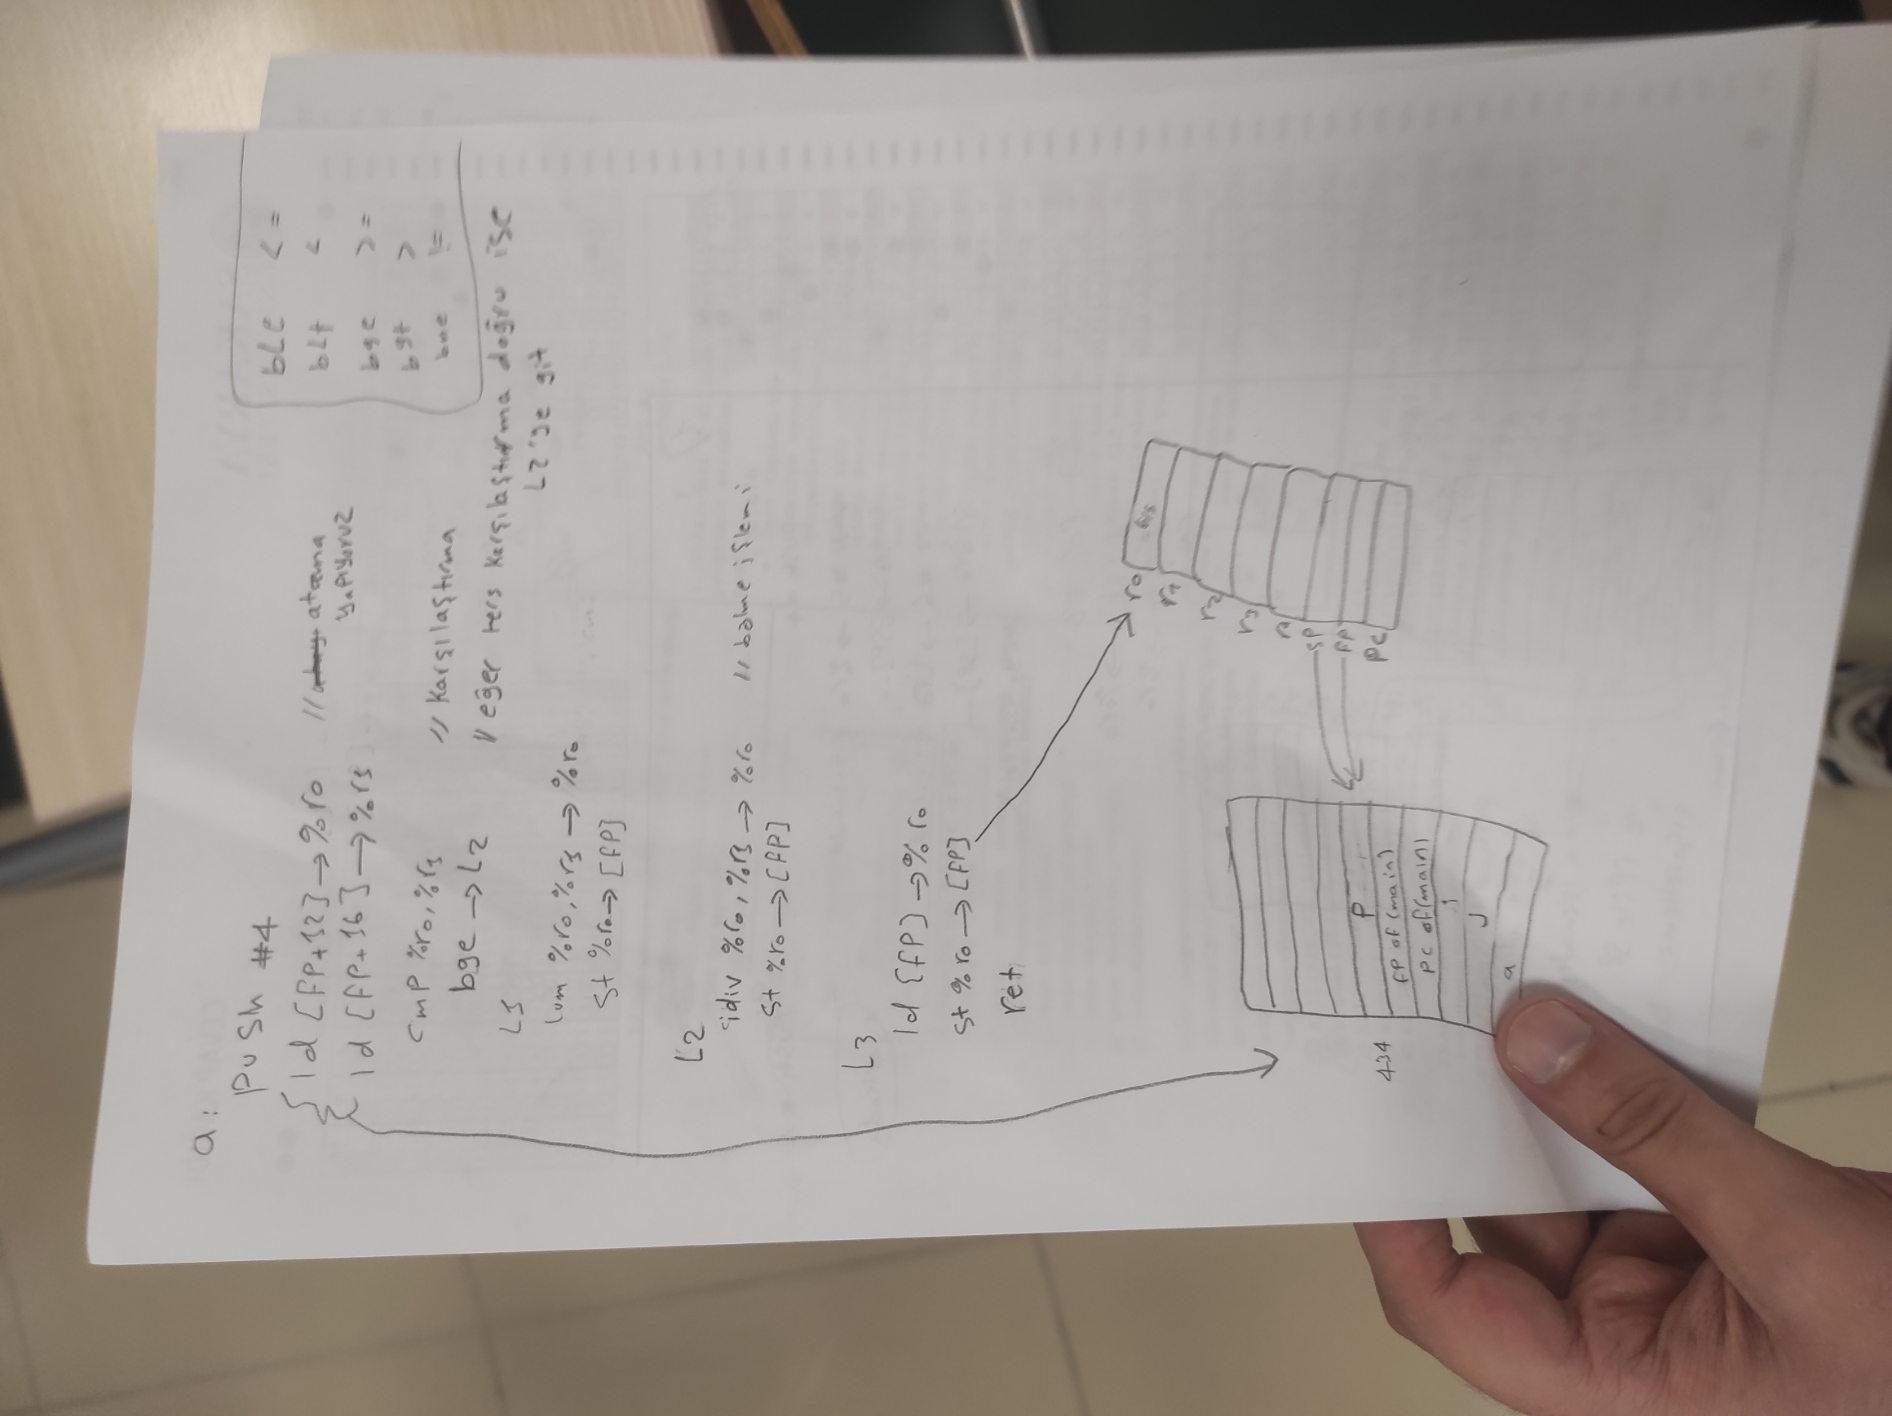 a:
push #4
ld [FP+12] → %r0 // atama
yapıyoruz
ld [FP+16] → %r1
cmp %r0, %r1 // Karşılaştırma
bge → L2 // eğer ters karşılaştırma doğru ise
L2'ye git
L1
%r0, %r1 → %r0
st %r0 → [FP]
L2
idiv %r0, %r1 → %r0 // bölme işlemi
st %r0 → [FP]
L3
ld [FP] → %r0
st %r0 → [FP]
ret
ble <=
blt <
bge >=
bgt >
bne !=
r0
r1
r2
r3
SP
FP
PC
434
P
FP of (main)
PC of (main)
i
J
a